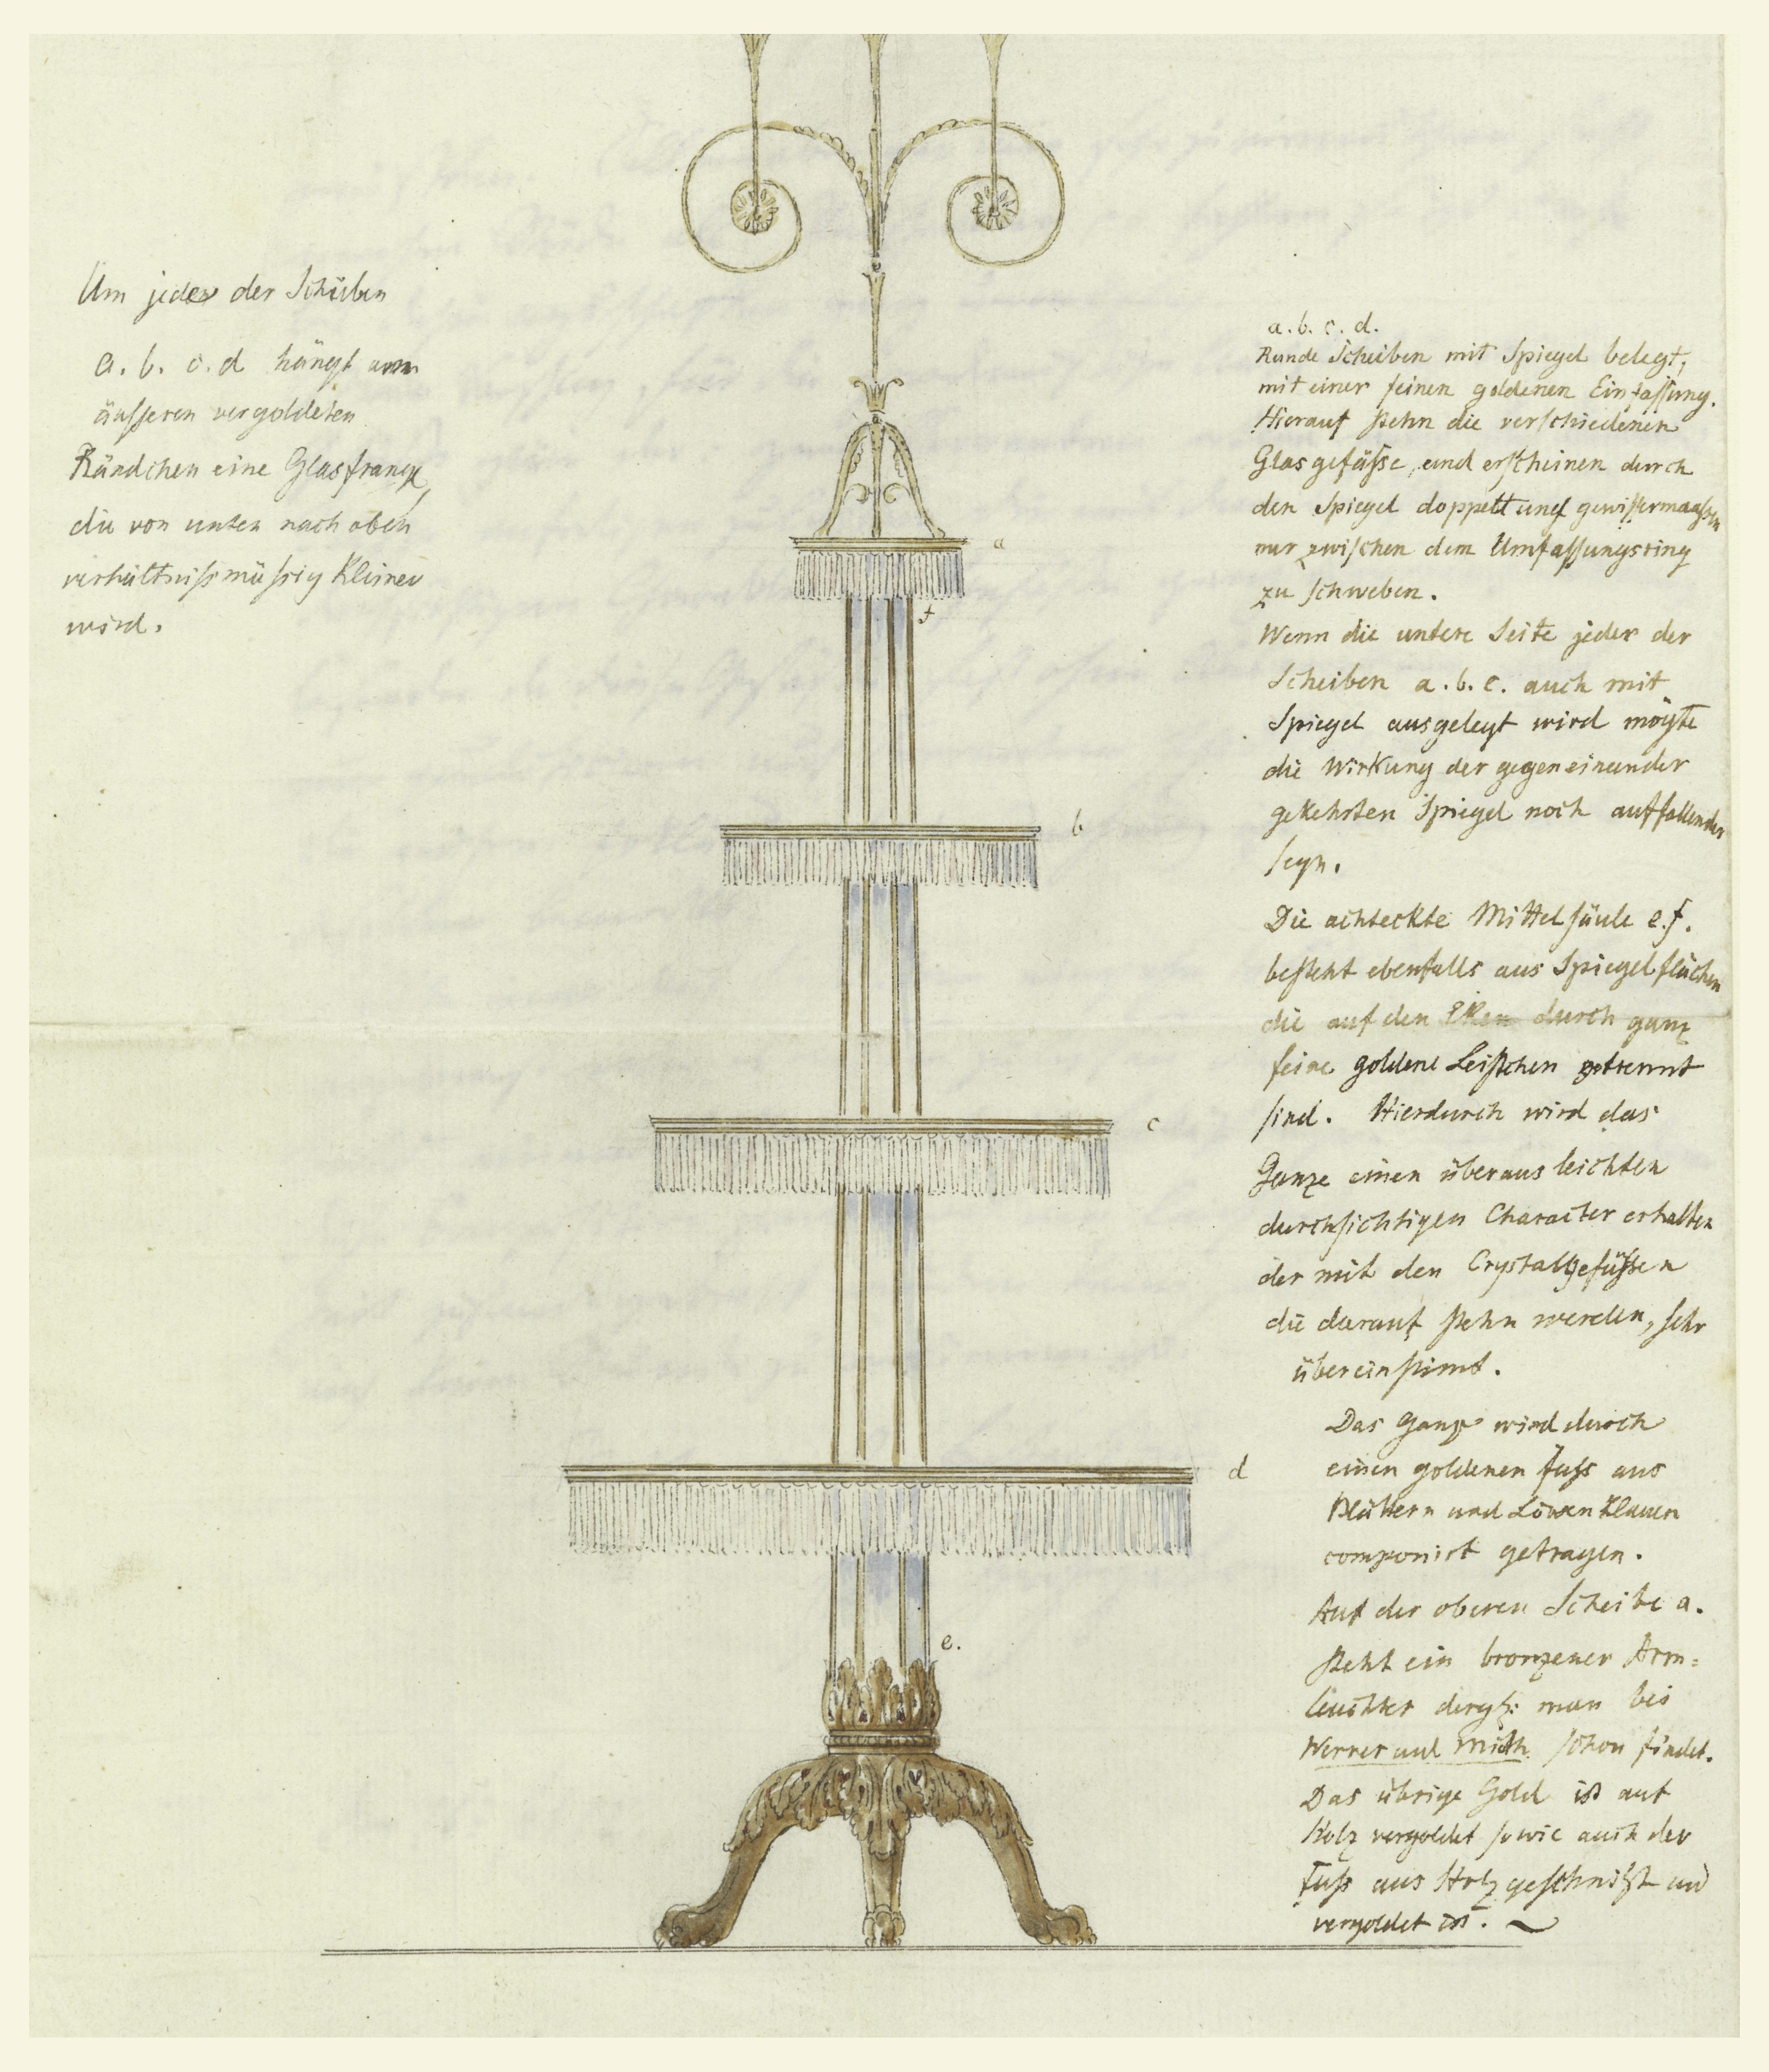 Um jeder der Scheiben
a. b. c. d hängt am
äusseren vergoldeten
Rändchen eine Glasfranze,
die von unten nach oben
verhältnissmässig kleiner
wird.
a
f
b
c
d
e.
a. b. c. d.
Runde Scheiben mit Spiegel belegt,
mit einer feinen goldenen Einfassung.
Hierauf stehn die verschiedenen
Glasgefässe, und erscheinen durch
den Spiegel doppelt und gewissermaassen
nur zwischen dem Umfassungsring
zu schweben.
Wenn die untere Seite jeder der
Scheiben a. b. c. auch mit
Spiegel ausgelegt wird mögte
die Wirkung der gegeneinander
gekehrten Spiegel noch auffallender
seyn.
Die achteckte Mittelsäule e.f.
besteht ebenfalls aus Spiegelflächen
die auf den Eken durch ganz
feine goldene Leistchen getrennt
sind. Hierdurch wird das
Ganze einen überaus leichten
durchsichtigen Character erhalten
der mit den Crystallgefässen
die darauf stehn werden, sehr
übereinstimt.
Das Ganze wird durch
einen goldenen Fuss aus
Blättern und Löwenklauen
componirt getragen.
Auf der oberen Scheibe a.
steht ein bronzener Arm=
leuchter dergl: man bei
Werner und Mieth schon findet.
Das übrige Gold ist auf
Holz vergoldet sowie auch der
Fuss aus Holz geschnitzt und
vergoldet ist.